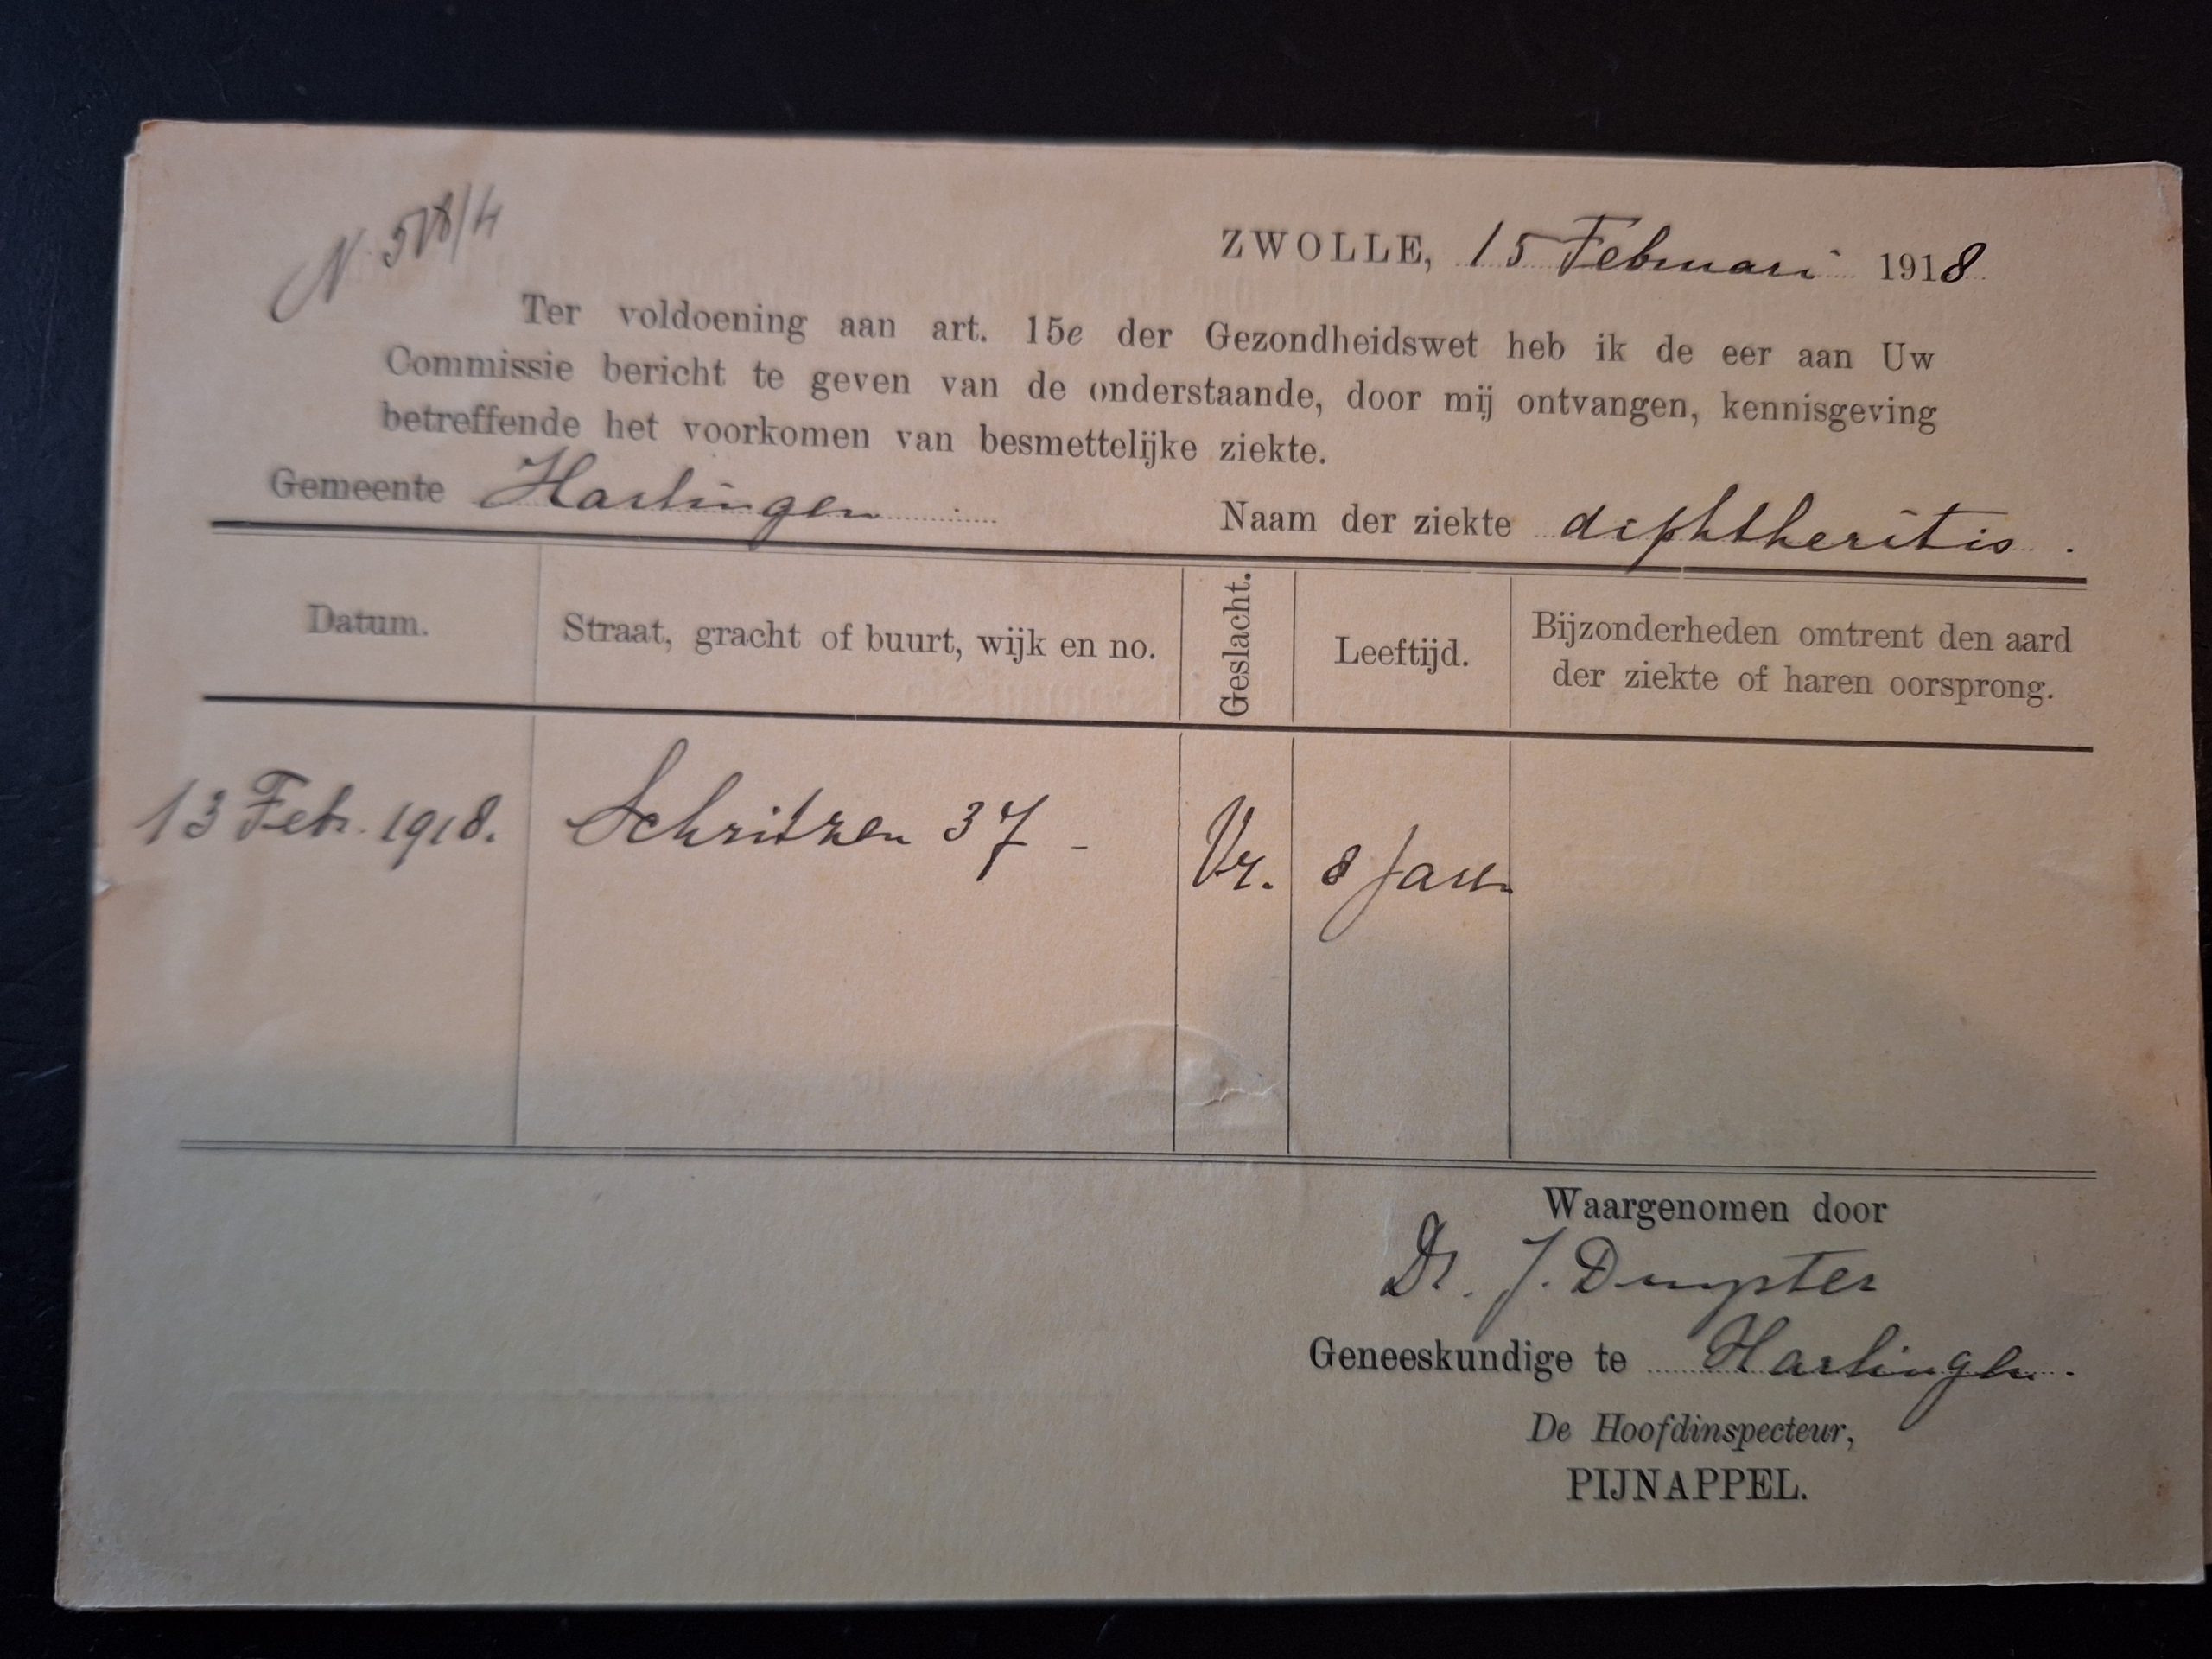 ZWOLLE, 15 Februari 1918
Ter voldoening aan art. 15e der Gezondheidswet heb ik de eer aan Uw
Commissie bericht te geven van de onderstaande, door mij ontvangen, kennisgeving
betreffende het voorkomen van besmettelijke ziekte.
Gemeente Harlingen Naam der ziekte diphtheritis.
Datum. Straat, gracht of buurt, wijk en no. Geslacht. Leeftijd. Bijzonderheden omtrent den aard
der ziekte of haren oorsprong.
13 Feb. 1918. Schritzen 37 - Vr. 8 Jaren
Waargenomen door
Dr. J.
Geneeskundige te Harlingen.
De Hoofdinspecteur,
PIJNAPPEL.